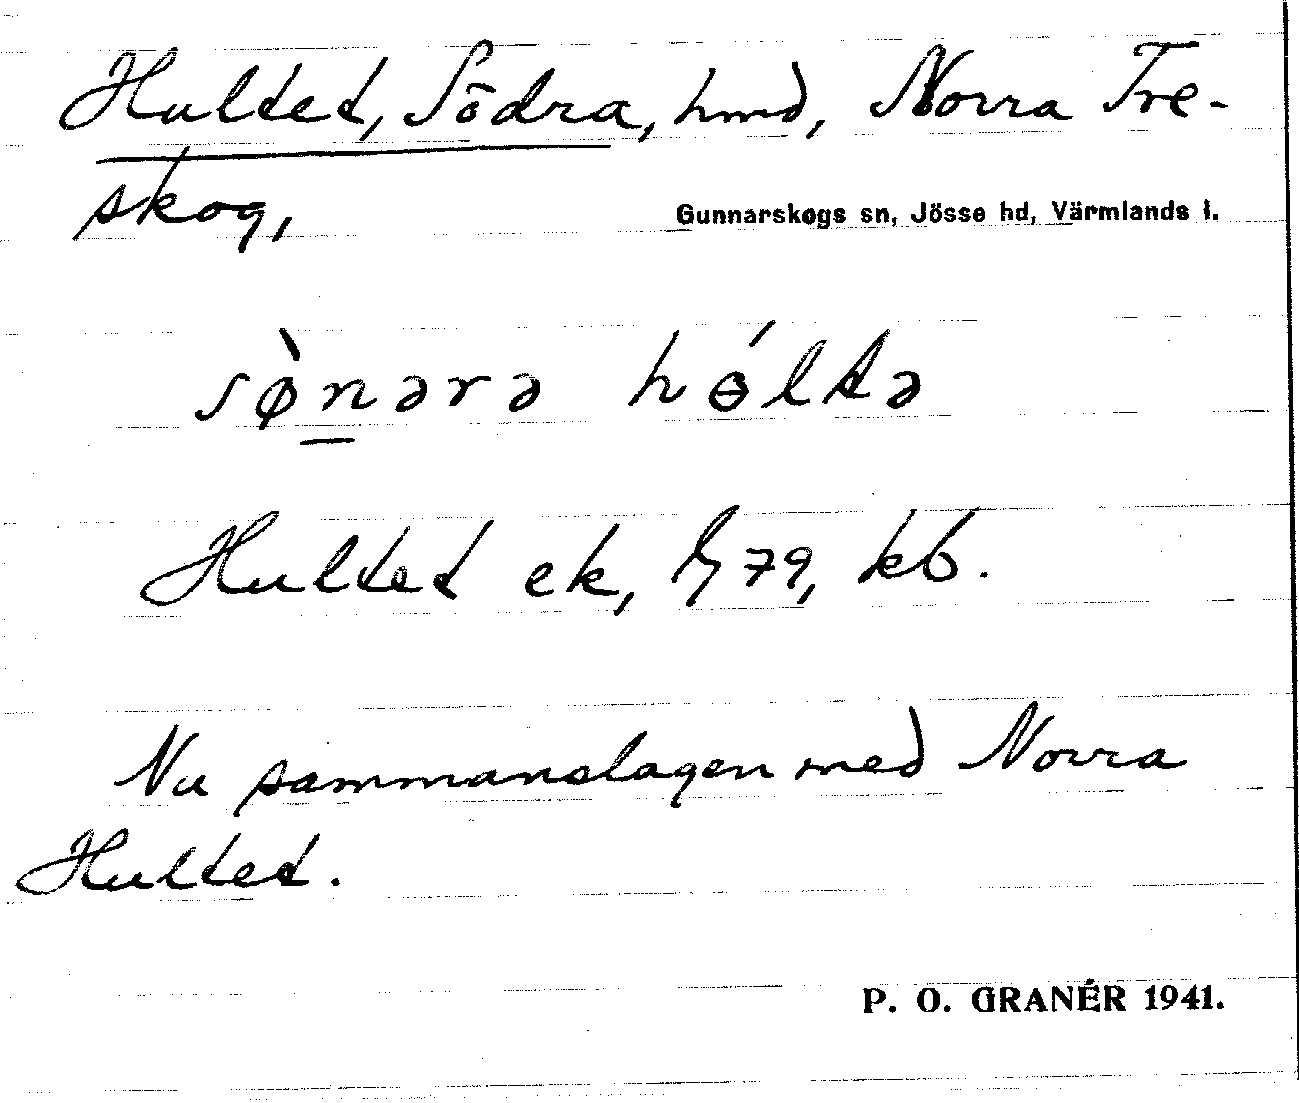 Hultet, Södra, hmd, Norra Tre-
skog,
Gunnarskogs sn, Jösse hd, Värmlands l.
sø̀n̲ərə hɵ́ltə
Hultet ek, 79, kb.
Nu sammanslagen med Norra
Hultet.
P. O. GRANÉR 1941.